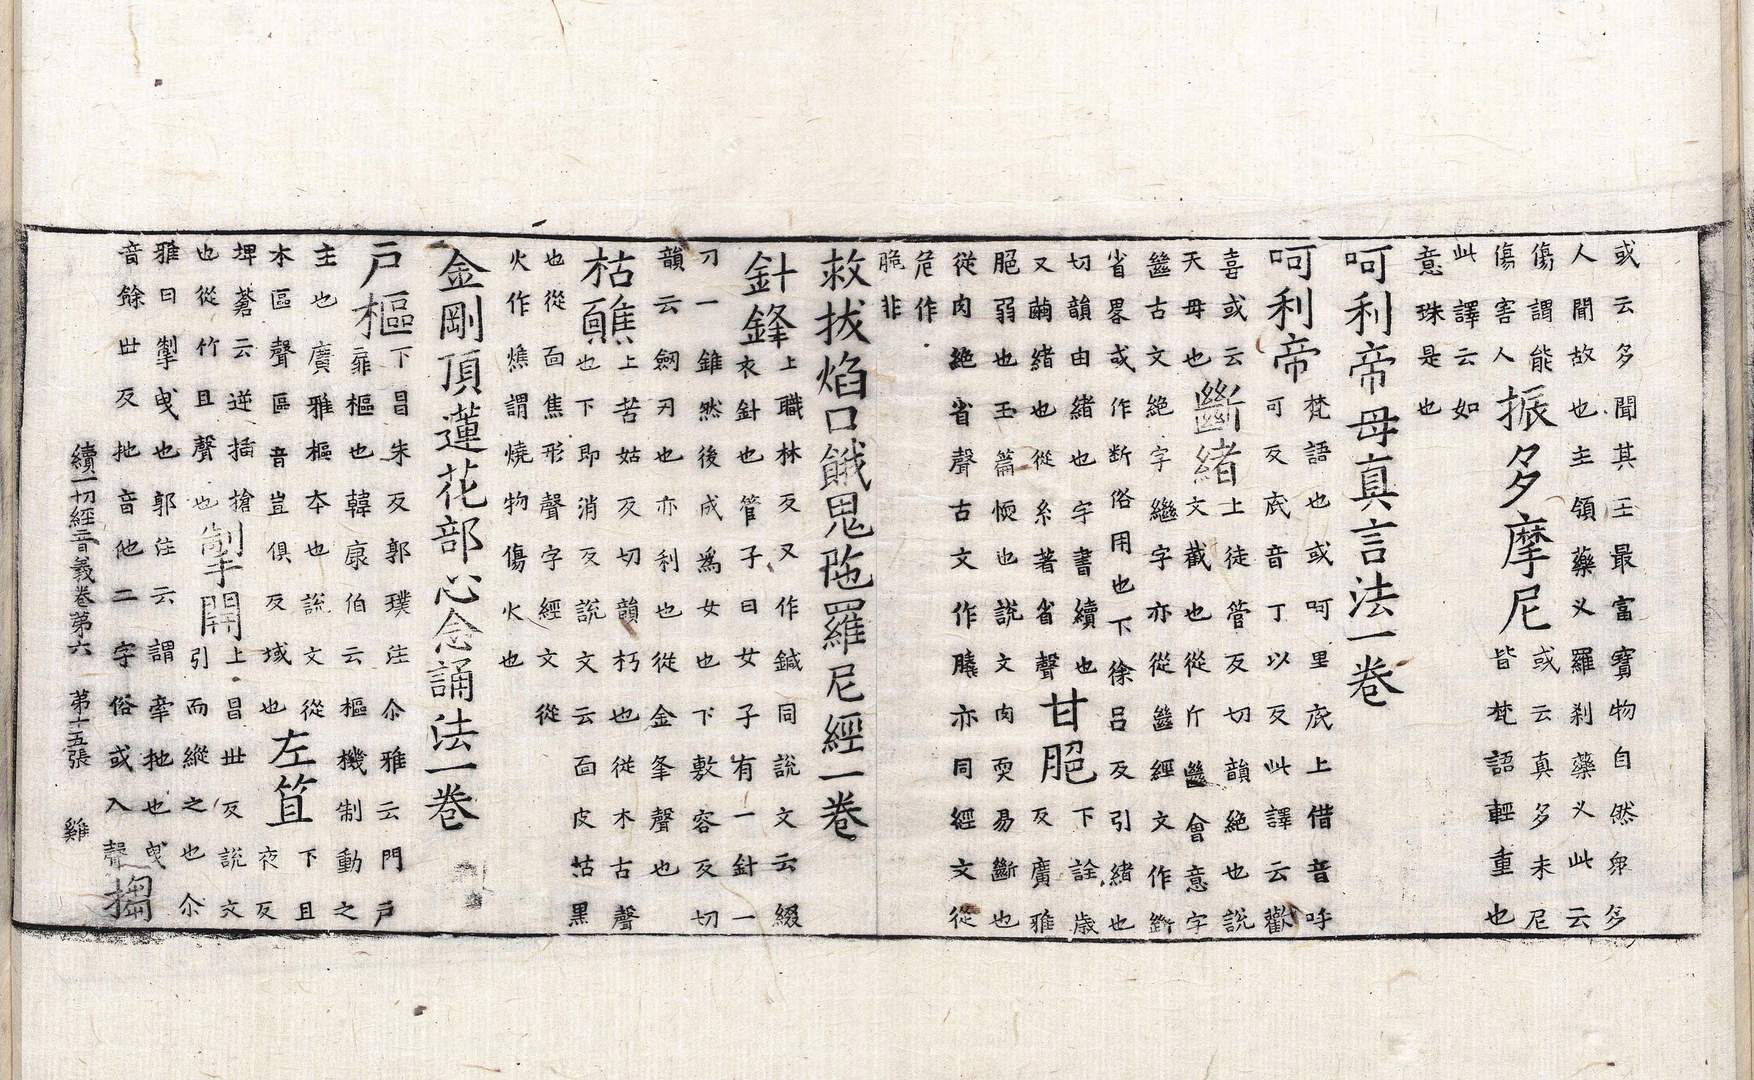 或云多聞其王最富寶物自然眾多
人聞故也主領藥义羅剎藥义此云
傷謂能
傷害人
振多摩尼
或云真多末尼
皆梵語輕重也
此譯云如
意珠是也
呵利帝母真言法一卷
呵利帝
梵語也或呵里底上借音呼
可反底音丁以反此譯云歡
喜或云
天母也
斷緒
上徒管反切韻絕也說
文截也從斤㡭會意字
㡭古文絕字繼字亦從㡭經文作斷
省畧或作断俗用也下徐呂反引緒也
切韻由緒也字書續也
又繭緒也從糸著省聲
甘脃
下詮歲
反廣雅
脃弱也玉篇愞也說文肉耎易斷也
從肉絕省聲古文作膬亦同經文從
危作
脆非
救拔焰口餓鬼陁羅尼經一卷
針鋒
上職林反又作鍼同說文云綴
衣針也管子曰女子有一針一
刀一錐然後成為女也下敷容反切
韻云劒刃也亦利也從金夆聲也
枯䩌
上苦姑反切韻朽也從木古聲
也下即消反說文云面皮枯黑
也從面焦形聲字經文從
火作燋謂燒物傷火也
金剛頂蓮花部心念誦法一卷
戶樞
下昌朱反郭璞注尒雅云門戶
扉樞也韓康伯云樞機制動之
主也廣雅樞本也說文從
木區聲區音豈俱反域也
左笡
下且
夜反
埤蒼云逆插搶
也從竹且聲也
掣開
上昌世反說文
引而縱之也尒
雅曰掣曳也郭注云謂牽拕也曳
音餘世反拕音他二字俗或入聲
搊
續一切經音義卷第六 第十五張 雞